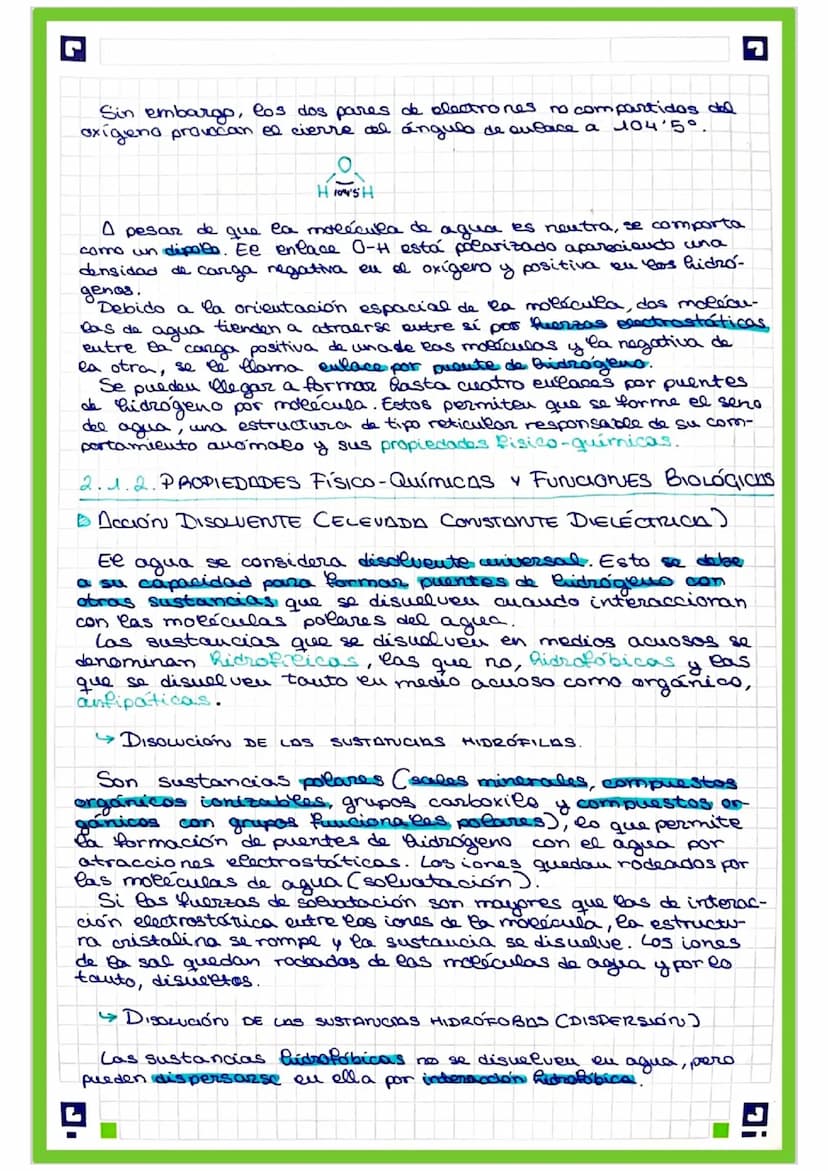 Sin embargo, los dos pares de electrones no compartidos del
oxígeno provocan el cierre del ángulo de enlace a 104'5º.
O
H 104'5 H
A pesar de que la molécula de agua es neutra, se comporta
como un dipolo. El enlace O-H está polarizado apareciendo una
densidad de carga negativa en el oxígeno y positiva en los hidró-
genos.
Debido a la orientación espacial de la molécula, dos molécu-
las de agua tienden a atraerse entre sí por fuerzas electrostáticas
entre la carga positiva de una de las moléculas y la negativa de
la otra, se le llama enlace por puente de hidrógeno.
Se pueden llegar a formar hasta cuatro enlaces por puentes
de hidrógeno por molécula. Estos permiten que se forme el seno
del agua, una estructura de tipo reticular responsable de su com-
portamiento anómalo y sus propiedades físico-químicas.
2.1.2. PROPIEDADES FÍSICO-QUÍMICAS Y FUNCIONES BIOLÓGICAS
ACCIÓN DISOLVENTE (ELEVADA CONSTANTE DIELÉCTRICA)
El agua se considera disolvente universal. Esto se debe
a su capacidad para formar puentes de hidrógeno con
otras sustancias que se disuelven cuando interaccionan
con las moléculas polares del agua.
Las sustancias que se disuelven en medios acuosos se
denominan hidrofílicas, las que no, hidrofóbicas y las
que se disuelven tanto en medio acuoso como orgánico,
anfipáticas.
↳ DISOLUCIÓN DE LAS SUSTANCIAS HIDRÓFILAS.
Son sustancias polares (sales minerales, compuestos
orgánicos ionizables, grupos carboxilo y compuestos or-
gánicos con grupos funcionales polares), lo que permite
la formación de puentes de hidrógeno con el agua por
atracciones electrostáticas. Los iones quedan rodeados por
las moléculas de agua (solvatación).
Si las fuerzas de solvatación son mayores que las de interac-
ción electrostática entre los iones de la molécula, la estructu-
ra cristalina se rompe y la sustancia se disuelve. Los iones
de la sal quedan rodeados de las moléculas de agua y por lo
tanto, disueltos.
↳ DISOLUCIÓN DE LAS SUSTANCIAS HIDRÓFOBAS (DISPERSIÓN)
Las sustancias hidrofóbicas no se disuelven en agua, pero
pueden dispersarse en ella por interacción hidrofóbica.